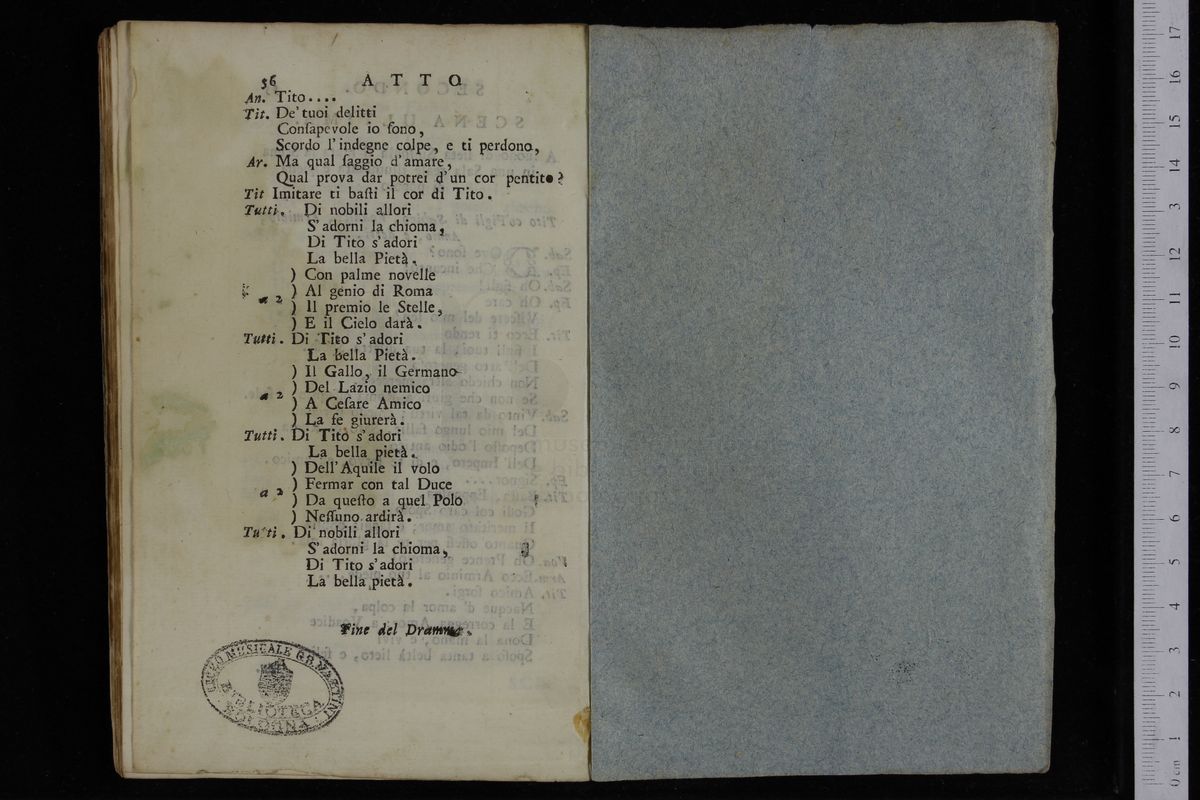 56 ATTO
An. Tito....
Tit. De' tuoi delitti
Conſapevole io ſono,
Scordo l'indegne colpe, e ti perdono,
Ar. Ma qual ſaggio d'amare,
Qual prova dar potrei d'un cor pentito?
Tit Imitare ti baſti il cor di Tito.
Tutti. Di nobili allori
S'adorni la chioma,
Di Tito s'adori
La bella Pietà.
) Con palme novelle
a 2 ) Al genio di Roma
) Il premio le Stelle,
) E il Cielo darà.
Tutti. Di Tito s'adori
La bella Pietà.
) Il Gallo, il Germano
) Del Lazio nemico
a 2 ) A Ceſare Amico
) La fe giurerà.
Tutti. Di Tito s'adori
La bella pietà.
) Dell'Aquile il volo
) Fermar con tal Duce
a 2 ) Da queſto a quel Polo
) Neſſuno ardirà.
Tutti. Di nobili allori
S'adorni la chioma,
Di Tito s'adori
La bella pietà.
Fine del Dramma.
LICEO MUSICALE G.B. MARTINI
BIBLIOTECA
BOLOGNA
0 cm 1 2 3 4 5 6 7 8 9 10 11 12 13 14 15 16 17